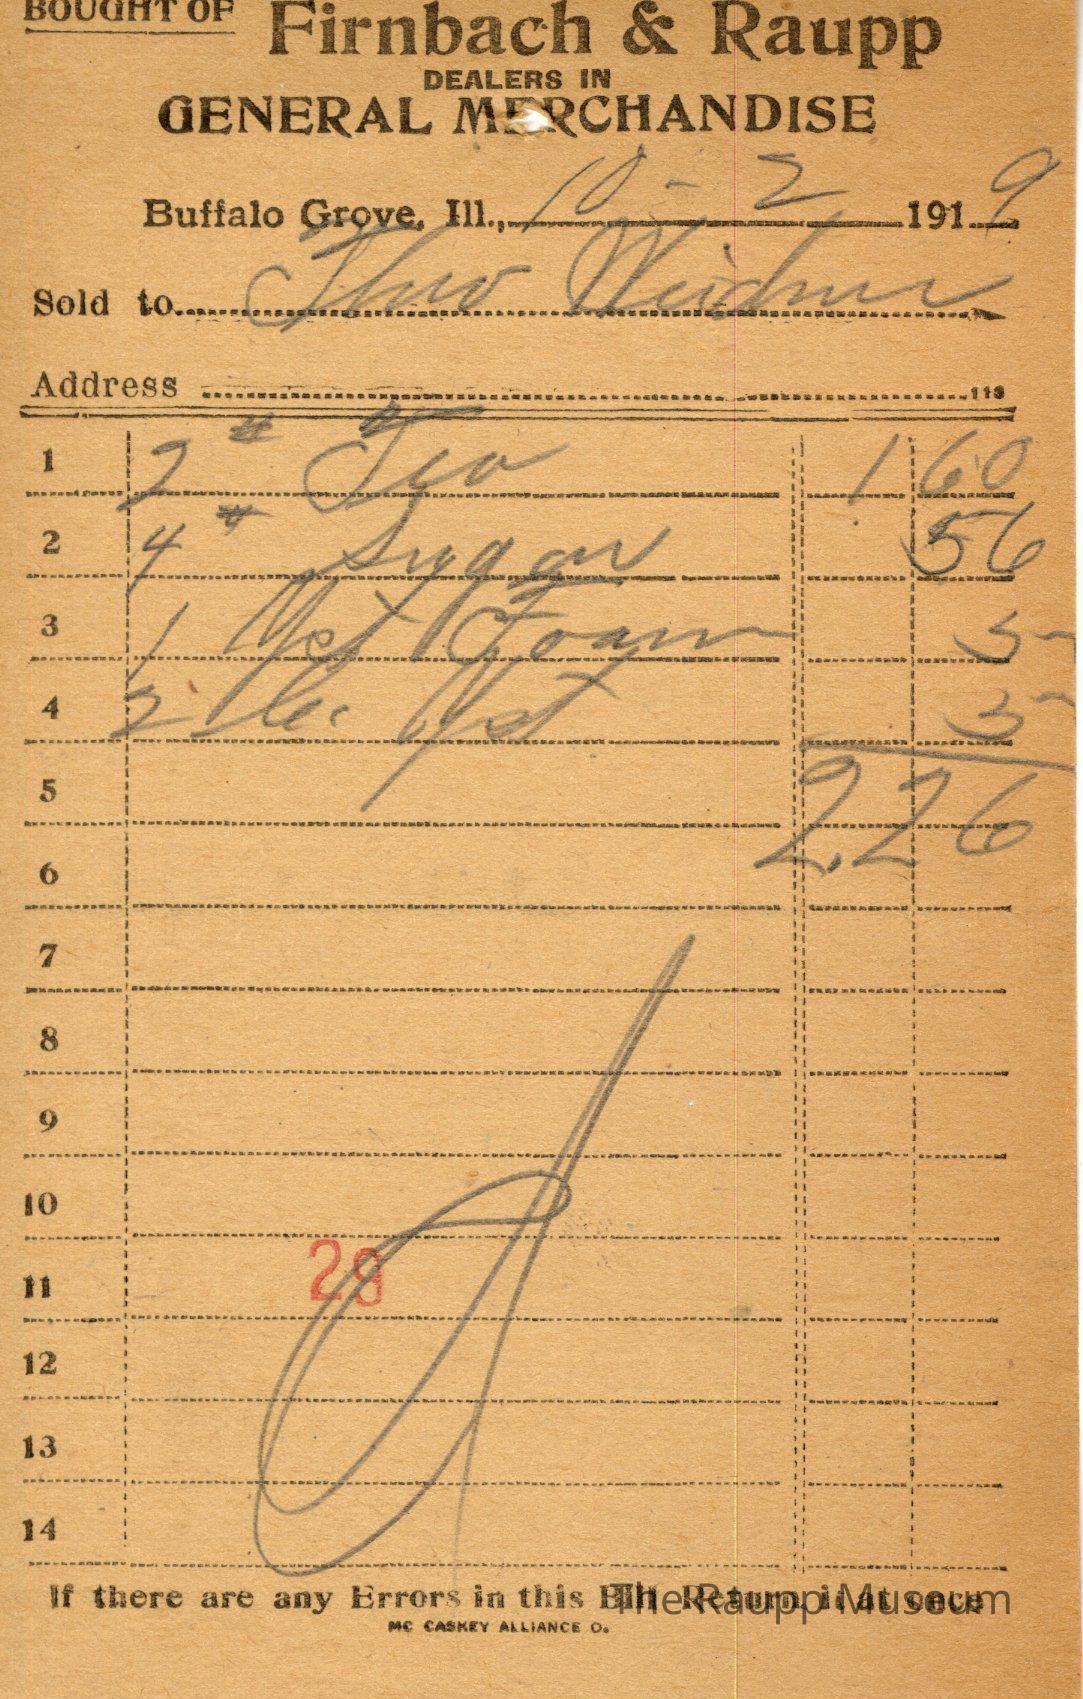 BOUGHT OF Firnbach & Raupp
DEALERS IN
GENERAL MERCHANDISE
Buffalo Grove, Ill., 10 - 2 1919
Sold to Theo Weidner
Address
1 2 # Tea 1 60
2 4 # Sugar 56
3 1 Yst Foam 5
4 2 c. Yst 5
5 2.26
6
7
8
9
10
11 29
12
13
14
If there are any Errors in this Bill Return it at once
The Raupp Museum
MC CASKEY ALLIANCE O.